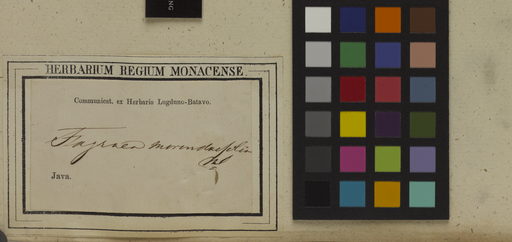 NG
HERBARIUM REGIUM MONACENSE
Communicat. ex Herbario Lugduno-Batavo.
Fagraea morindaefolia
Bl
Java.